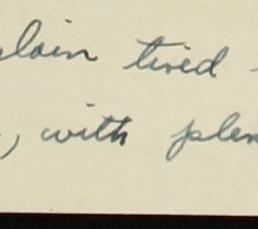 plain tired
, with plen